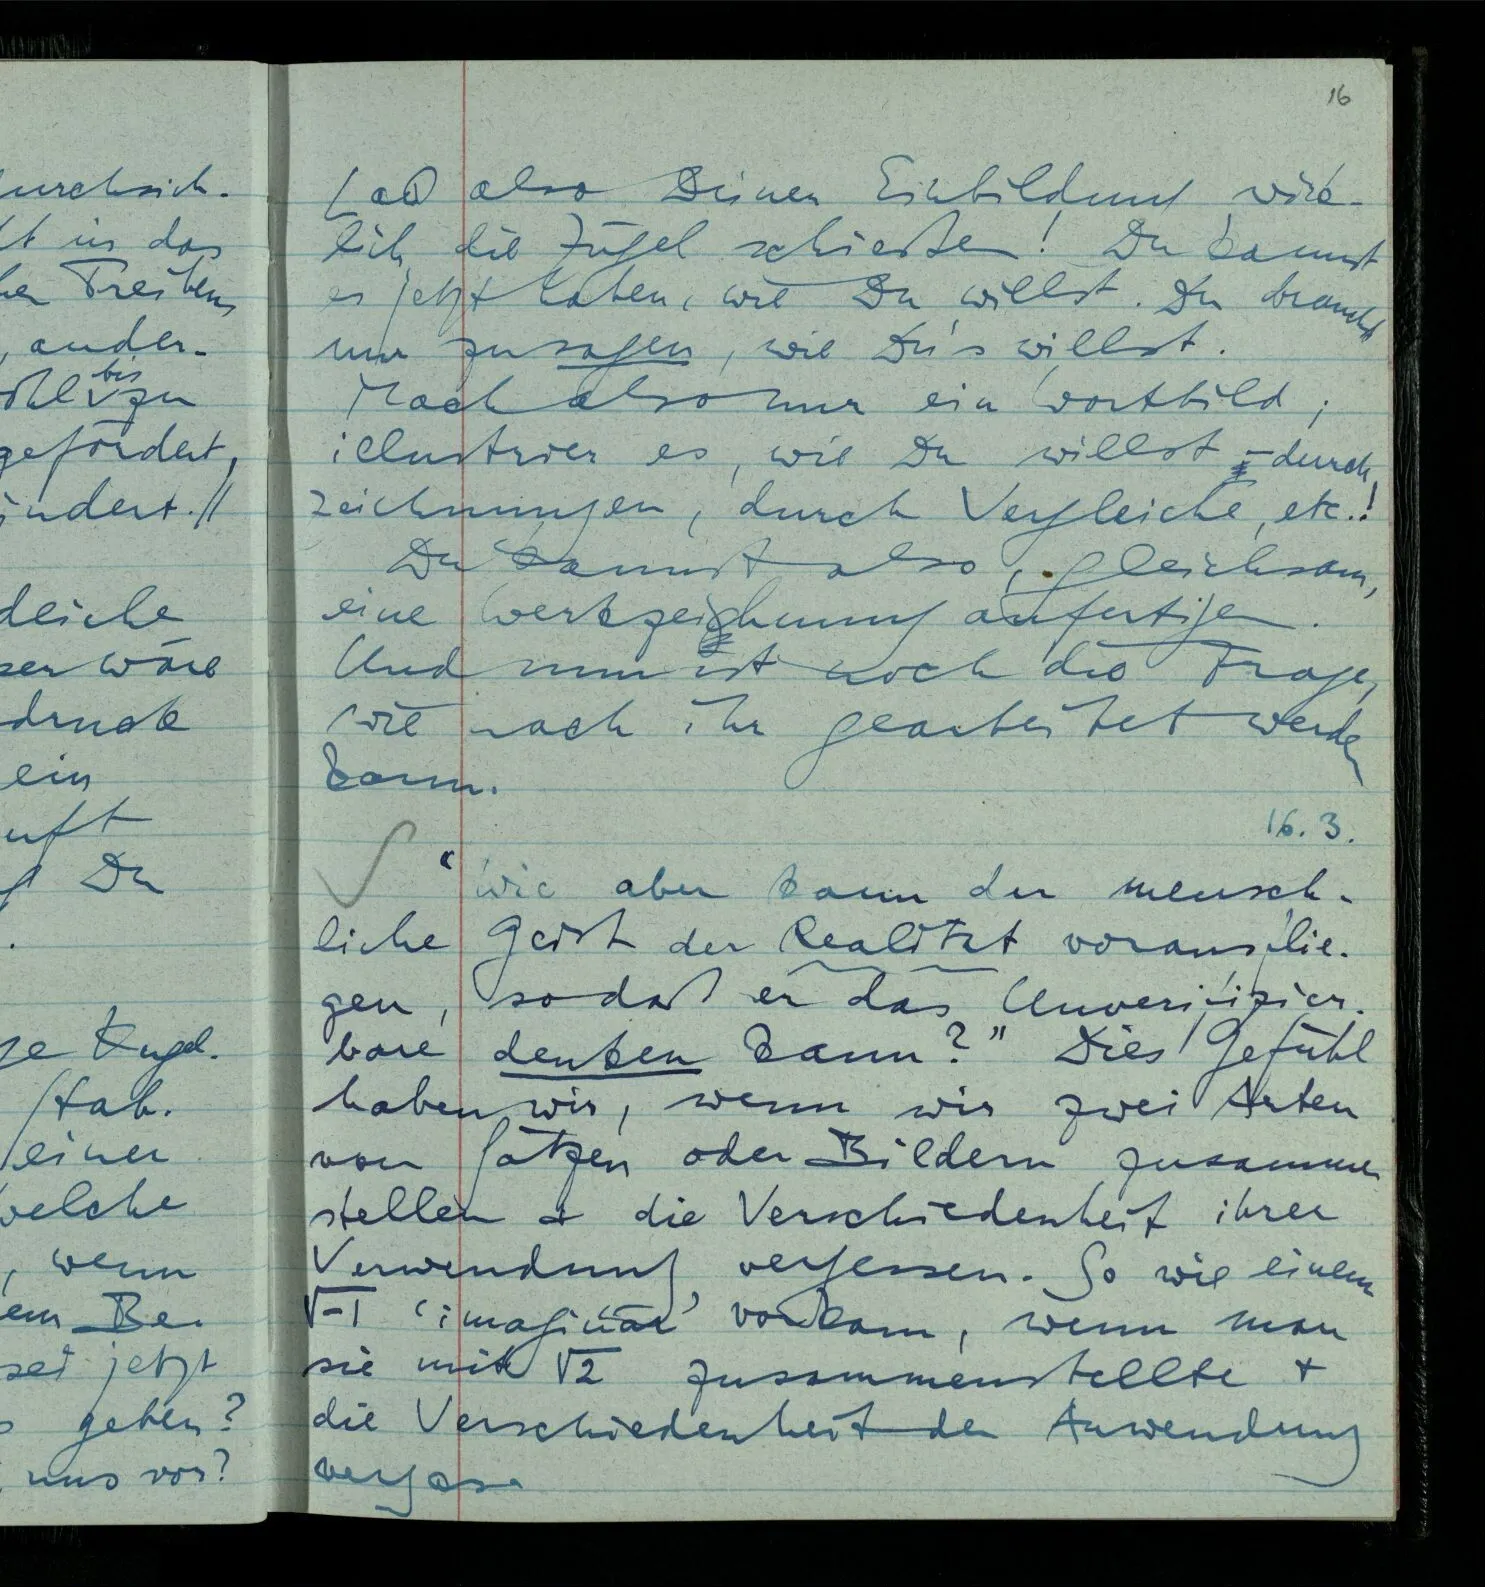 durchsich-
lt in das
her Treibens
, ander-
ohl bis zu
gefördert,
indert.//
dliche
ser wäre
druck
ein
uft
Du
.
ge Kugel.
Stab.
einer
welche
, wenn
em Be-
sei jetzt
s geben?
uns vor?
16
Laß also Deiner Einbildung wirk-
lich die Zügel schießen! Du kannst
es jetzt haben, wie Du willst. Du brauchst
nur zu sagen, wie Du's willst.
Mach also nur ein Wortbild;
illustrier es, wie Du willst – durch
Zeichnungen, durch Vergleiche, etc.!
Du kannst also, gleichsam,
eine Werkzeichnung anfertigen.
Und nun ist noch die Frage,
wie nach ihr gearbeitet werden
kann.
16. 3.
"Wie aber kann der mensch-
liche Geist der Realität vorausflie-
gen, sodaß er das Unverifizier-
bare denken kann?" Dies Gefühl
haben wir, wenn wir zwei Arten
von Sätzen oder Bildern zusammen
stellen & die Verschiedenheit ihrer
Verwendung vergessen. So wie einem
√-1 'imaginär' vorkam, wenn man
sie mit √2 zusammenstellte &
die Verschiedenheit der Anwendung
vergass